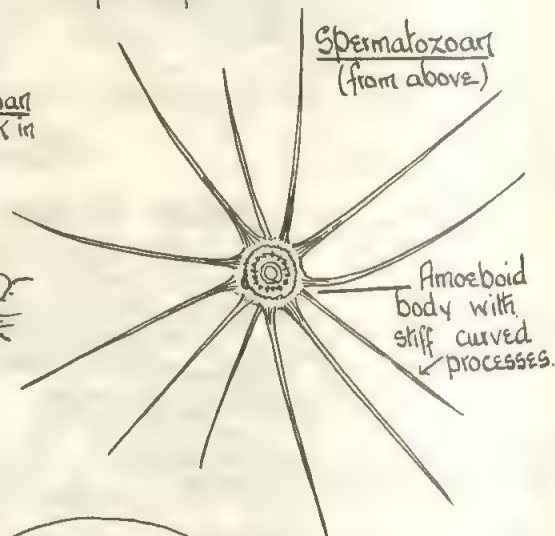 Spermatozoan
(from above)
k in
Amoeboid
body with
stiff curved
processes.